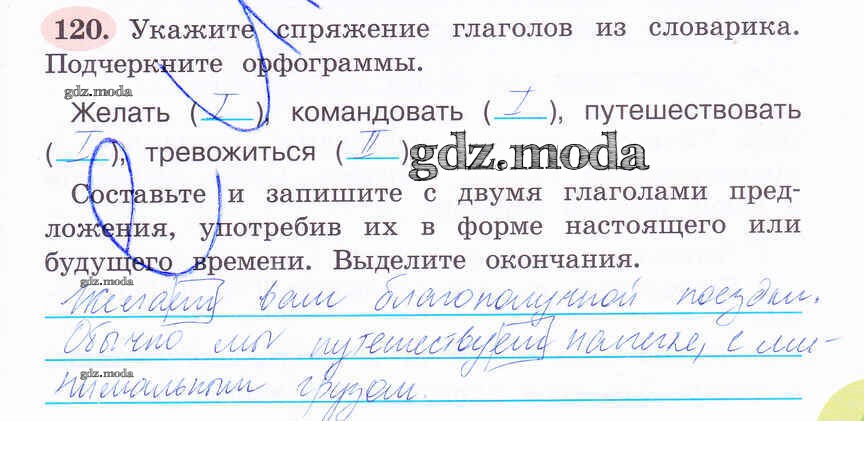 120. Укажите спряжение глаголов из словарика.
Подчеркните орфограммы.
gdz.moda
Желать ( I ), командовать ( I ), путешествовать
( I ), тревожиться ( II )
gdz.moda
Составьте и запишите с двумя глаголами пред-
ложения, употребив их в форме настоящего или
будущего времени. Выделите окончания.
gdz.moda
Желаем вам благополучной поездки.
Обычно мы путешествуем налегке, с ми-
gdz.moda
нимальным грузом.